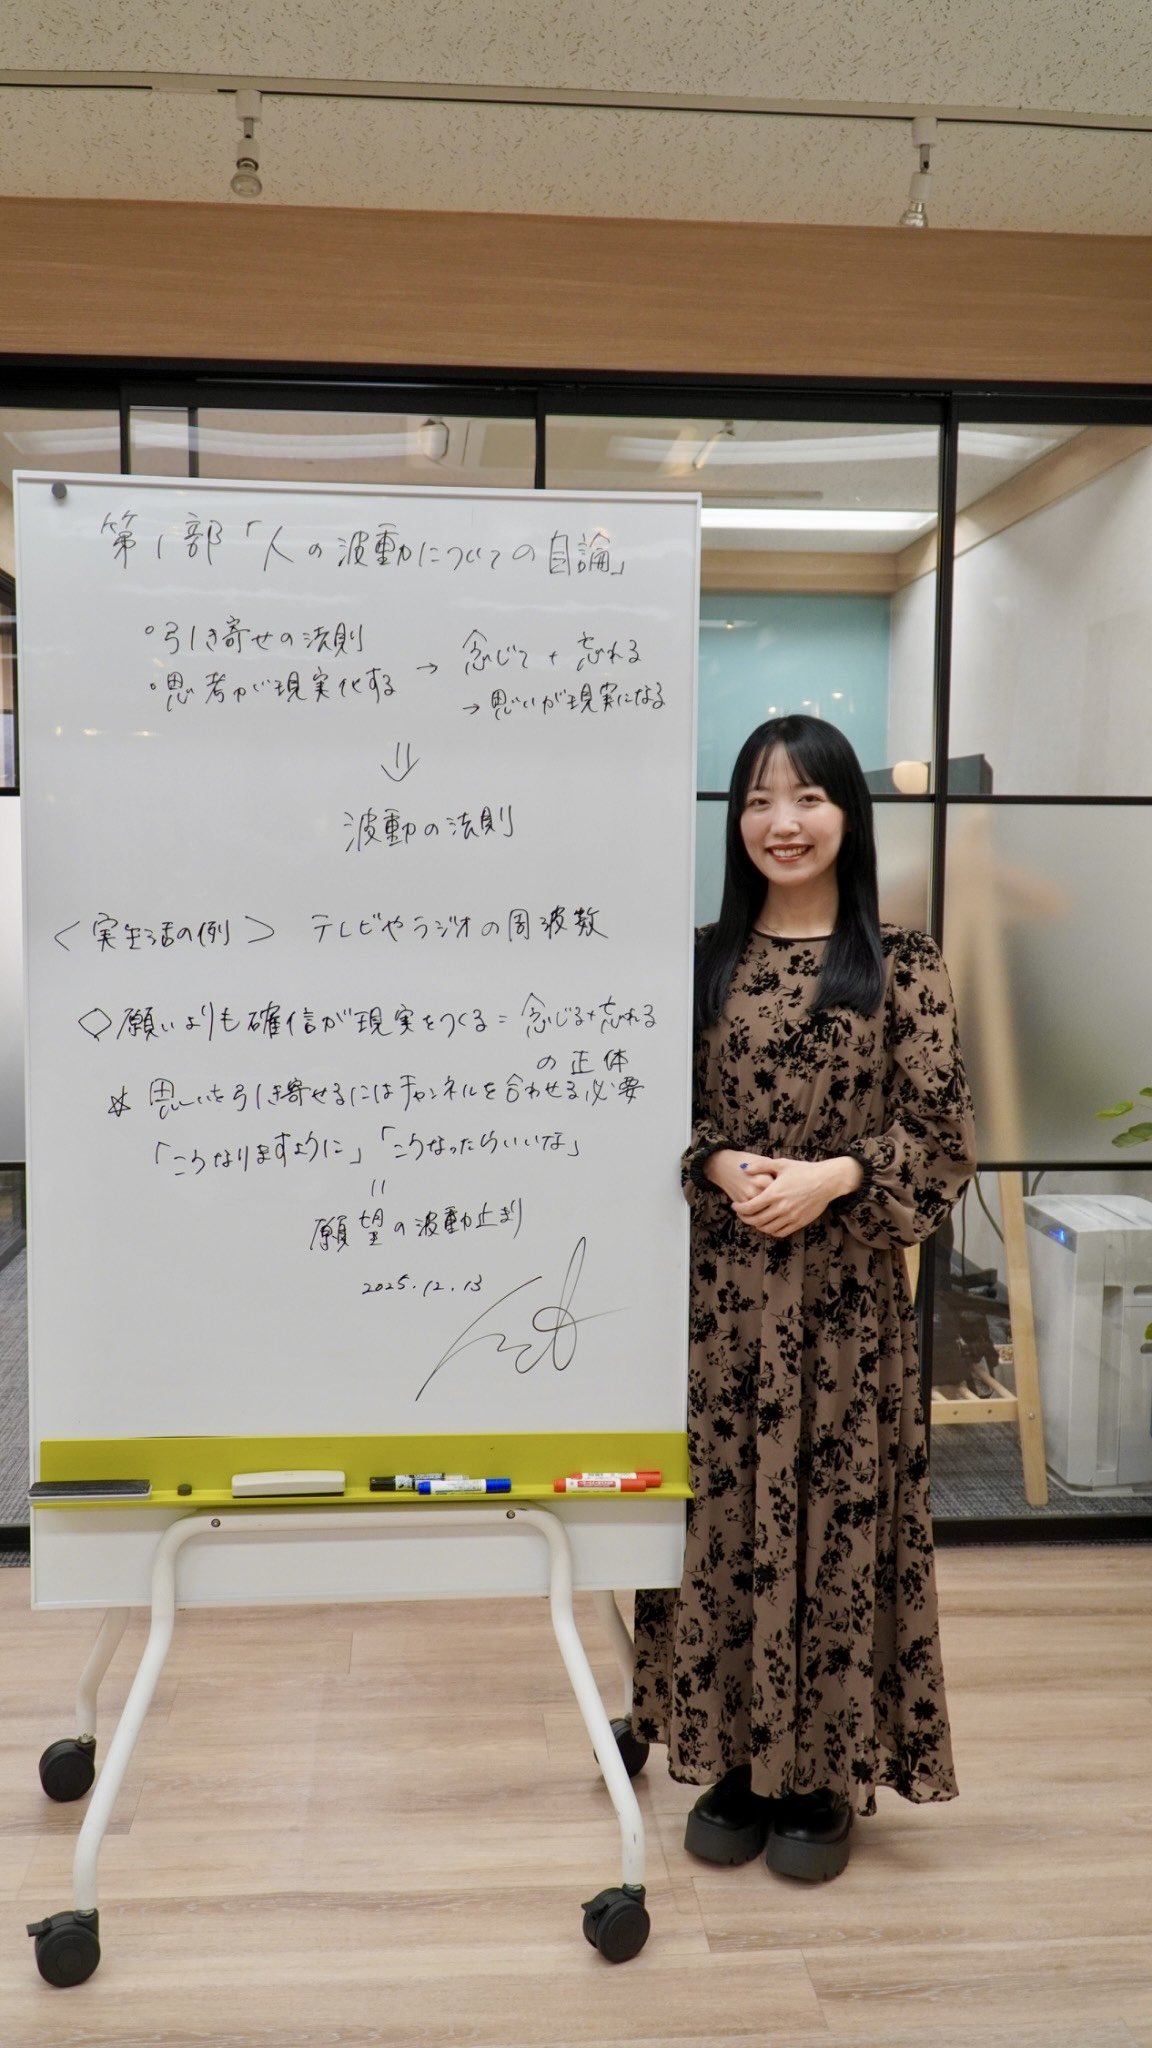 第1部「人の波動についての自論」
°引き寄せの法則
°思考が現実化する → 念じて + 忘れる
→ 思いが現実になる
波動の法則
〈実生活の例〉 テレビやラジオの周波数
◇願いよりも確信が現実をつくる = 念じる+忘れる
の正体
☆ 思いを引き寄せるにはチャンネルを合わせる必要
「こうなりますように」「こうなったらいいな」
=
願望の波動止まり
2025.12.13